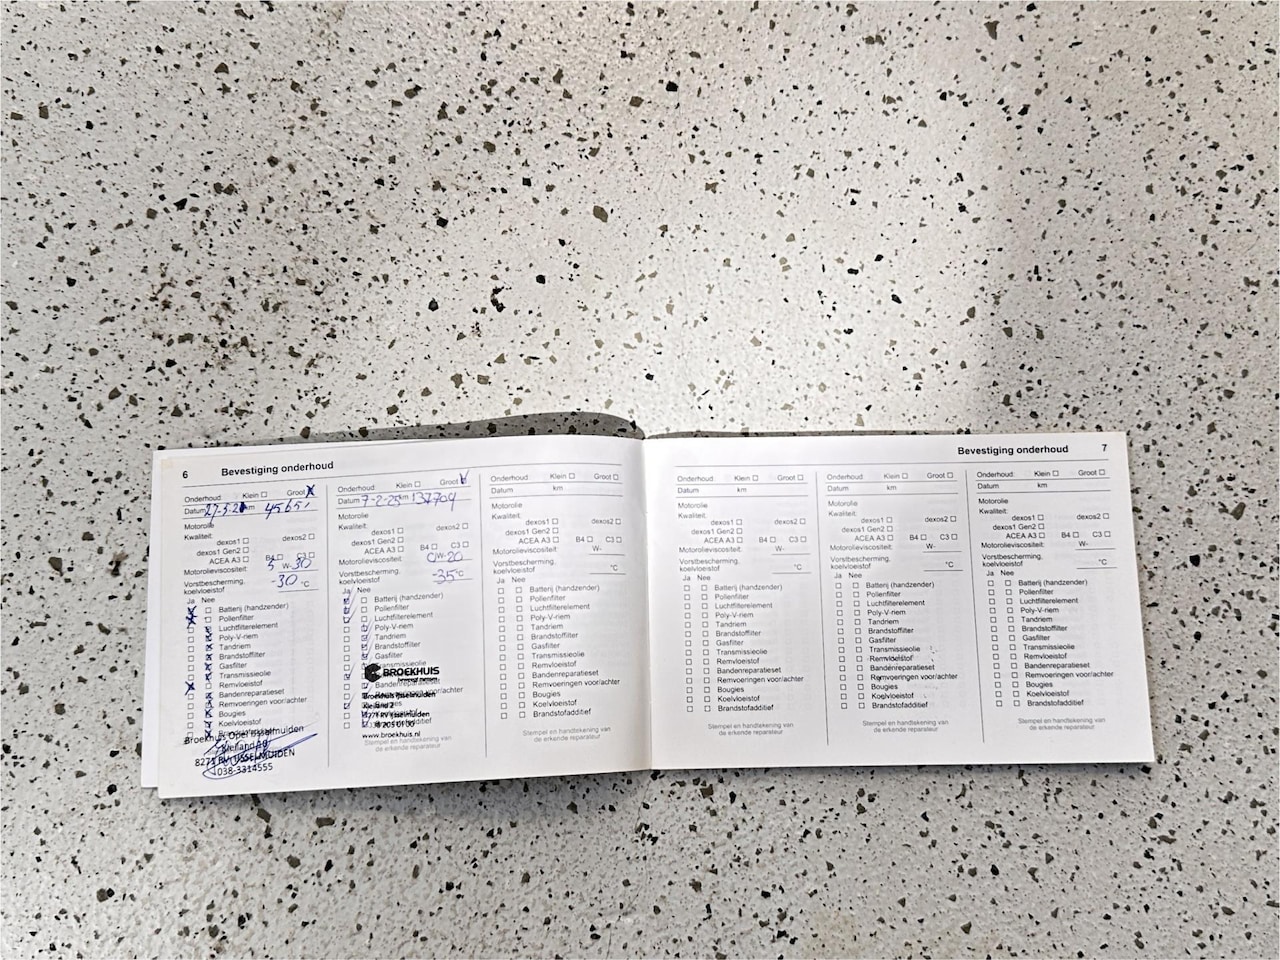 6 Bevestiging onderhoud
Onderhoud: Klein ☐ Groot X
Datum km
Motorolie
Kwaliteit:
dexos1 ☐ dexos2 ☐
dexos1 Gen2 ☐
ACEA A3 ☐ B4 ☐ C3 ☐
Motorolieviscositeit: 5 W- 30
Vorstbescherming,
koelvloeistof -30 °C
Ja Nee
Batterij (handzender)
Pollenfilter
Luchtfilterelement
Poly-V-riem
Tandriem
Brandstoffilter
Gasfilter
Transmissieolie
Remvloeistof
Bandenreparatieset
Remvoeringen voor/achter
Bougies
Koelvloeistof
Broekhuis Opel IJsselmuiden
8271 RV IJSSELMUIDEN
038-3314555
Onderhoud: Klein ☐ Groot
Datum 7-2-25 km 137704
Motorolie
Kwaliteit:
dexos1 ☐ dexos2 ☐
dexos1 Gen2 ☐
ACEA A3 ☐ B4 ☐ C3 ☐
Motorolieviscositeit: 0W-20
Vorstbescherming,
koelvloeistof -35 °C
Ja Nee
Batterij (handzender)
Pollenfilter
Luchtfilterelement
Poly-V-riem
Tandriem
Brandstoffilter
Gasfilter
Transmissieolie
BROEKHUIS
Bandenreparatieset
Remvoeringen voor/achter
Broekhuis IJsselmuiden
8271 RV IJsselmuiden
www.broekhuis.nl
Stempel en handtekening van
de erkende reparateur
Onderhoud: Klein ☐ Groot ☐
Datum km
Motorolie
Kwaliteit:
dexos1 ☐ dexos2 ☐
dexos1 Gen2 ☐
ACEA A3 ☐ B4 ☐ C3 ☐
Motorolieviscositeit: W-
Vorstbescherming,
koelvloeistof °C
Ja Nee
☐ ☐ Batterij (handzender)
☐ ☐ Pollenfilter
☐ ☐ Luchtfilterelement
☐ ☐ Poly-V-riem
☐ ☐ Tandriem
☐ ☐ Brandstoffilter
☐ ☐ Gasfilter
☐ ☐ Transmissieolie
☐ ☐ Remvloeistof
☐ ☐ Bandenreparatieset
☐ ☐ Remvoeringen voor/achter
☐ ☐ Bougies
☐ ☐ Koelvloeistof
☐ ☐ Brandstofadditief
Stempel en handtekening van
de erkende reparateur
Bevestiging onderhoud 7
Onderhoud: Klein ☐ Groot ☐
Datum km
Motorolie
Kwaliteit:
dexos1 ☐ dexos2 ☐
dexos1 Gen2 ☐
ACEA A3 ☐ B4 ☐ C3 ☐
Motorolieviscositeit: W-
Vorstbescherming,
koelvloeistof °C
Ja Nee
☐ ☐ Batterij (handzender)
☐ ☐ Pollenfilter
☐ ☐ Luchtfilterelement
☐ ☐ Poly-V-riem
☐ ☐ Tandriem
☐ ☐ Brandstoffilter
☐ ☐ Gasfilter
☐ ☐ Transmissieolie
☐ ☐ Remvloeistof
☐ ☐ Bandenreparatieset
☐ ☐ Remvoeringen voor/achter
☐ ☐ Bougies
☐ ☐ Koelvloeistof
☐ ☐ Brandstofadditief
Stempel en handtekening van
de erkende reparateur
Onderhoud: Klein ☐ Groot ☐
Datum km
Motorolie
Kwaliteit:
dexos1 ☐ dexos2 ☐
dexos1 Gen2 ☐
ACEA A3 ☐ B4 ☐ C3 ☐
Motorolieviscositeit: W-
Vorstbescherming,
koelvloeistof °C
Ja Nee
☐ ☐ Batterij (handzender)
☐ ☐ Pollenfilter
☐ ☐ Luchtfilterelement
☐ ☐ Poly-V-riem
☐ ☐ Tandriem
☐ ☐ Brandstoffilter
☐ ☐ Gasfilter
☐ ☐ Transmissieolie
☐ ☐ Remvloeistof
☐ ☐ Bandenreparatieset
☐ ☐ Remvoeringen voor/achter
☐ ☐ Bougies
☐ ☐ Koelvloeistof
☐ ☐ Brandstofadditief
Stempel en handtekening van
de erkende reparateur
Onderhoud: Klein ☐ Groot ☐
Datum km
Motorolie
Kwaliteit:
dexos1 ☐ dexos2 ☐
dexos1 Gen2 ☐
ACEA A3 ☐ B4 ☐ C3 ☐
Motorolieviscositeit: W-
Vorstbescherming,
koelvloeistof °C
Ja Nee
☐ ☐ Batterij (handzender)
☐ ☐ Pollenfilter
☐ ☐ Luchtfilterelement
☐ ☐ Poly-V-riem
☐ ☐ Tandriem
☐ ☐ Brandstoffilter
☐ ☐ Gasfilter
☐ ☐ Transmissieolie
☐ ☐ Remvloeistof
☐ ☐ Bandenreparatieset
☐ ☐ Remvoeringen voor/achter
☐ ☐ Bougies
☐ ☐ Koelvloeistof
☐ ☐ Brandstofadditief
Stempel en handtekening van
de erkende reparateur